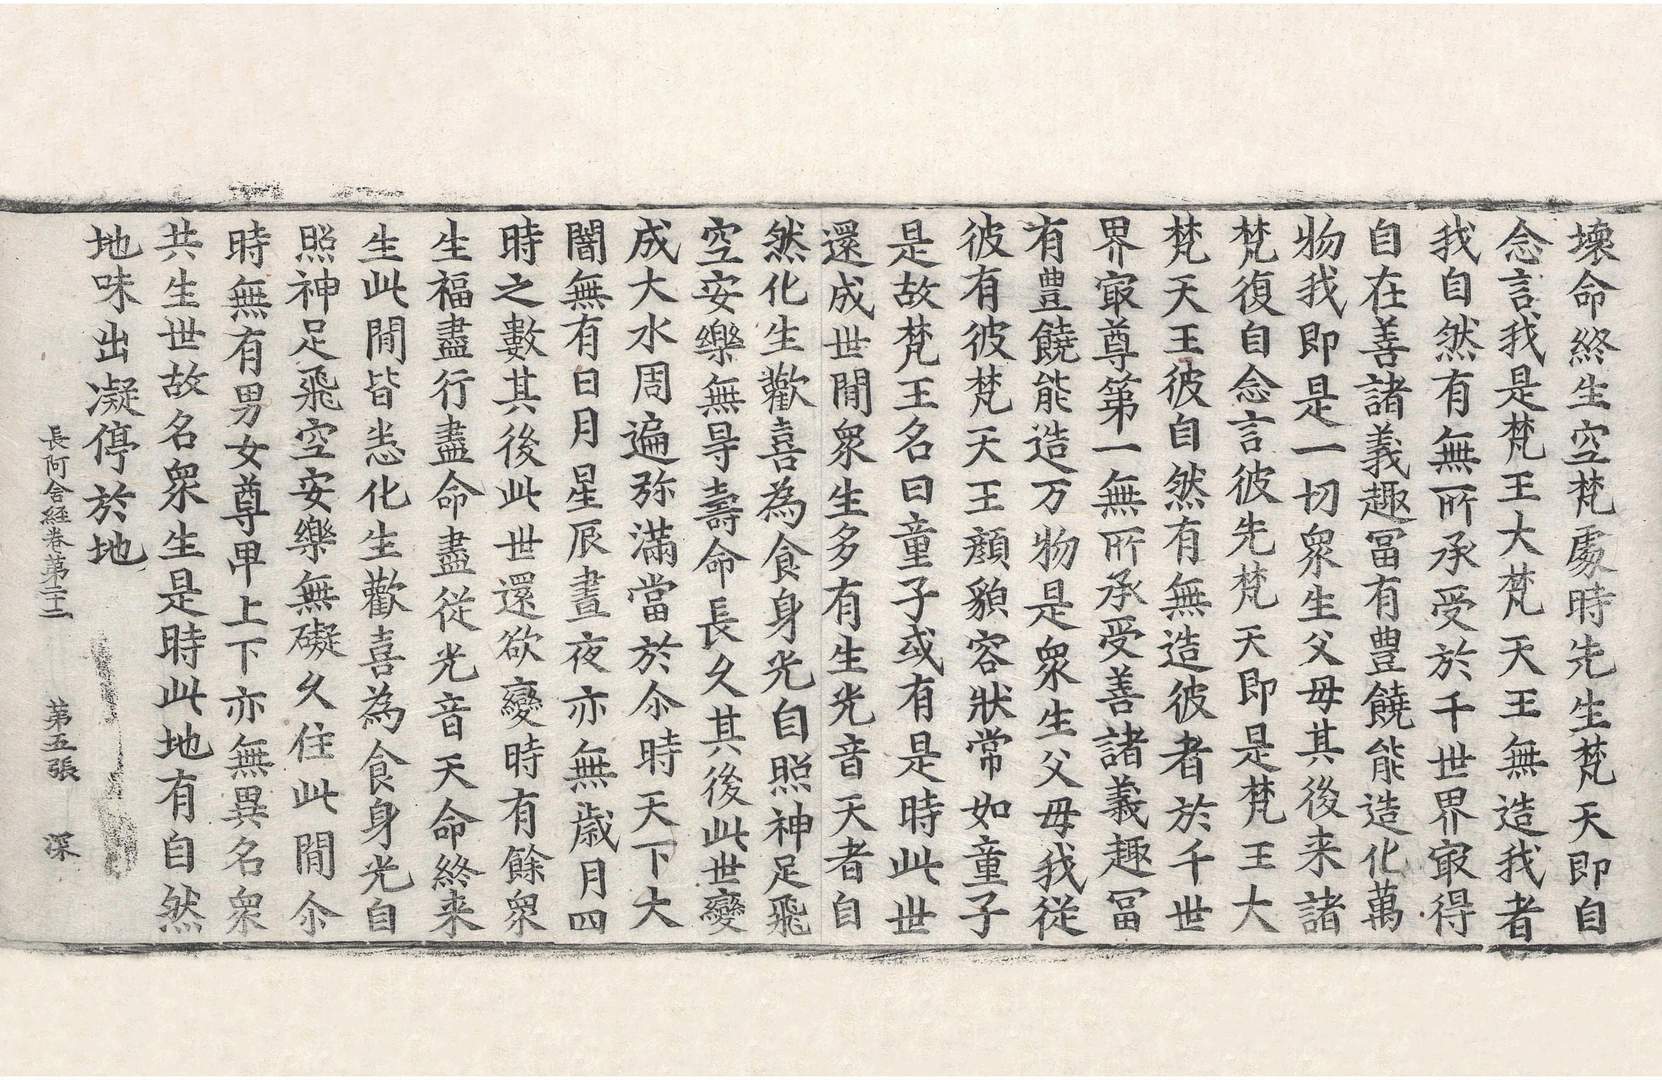 壞命終生空梵處時先生梵天即自
念言我是梵王大梵天王無造我者
我自然有無所承受於千世界㝡得
自在善諸義趣冨有豊饒能造化萬
物我即是一切衆生父母其後来諸
梵復自念言彼先梵天即是梵王大
梵天王彼自然有無造彼者於千世
界㝡尊第一無所承受善諸義趣冨
有豊饒能造万物是衆生父母我従
彼有彼梵天王顔貌容狀常如童子
是故梵王名曰童子或有是時此世
還成世閒衆生多有生光音天者自
然化生歡喜為食身光自照神足飛
空安樂無㝵壽命長久其後此世變
成大水周遍弥滿當於尒時天下大
闇無有日月星辰晝夜亦無歲月四
時之數其後此世還欲變時有餘衆
生福盡行盡命盡従光音天命終来
生此閒皆悉化生歡喜為食身光自
照神足飛空安樂無礙久住此閒尒
時無有男女尊卑上下亦無異名衆
共生世故名衆生是時此地有自然
地味出凝停於地
長阿含経卷第二十二 第五張 深